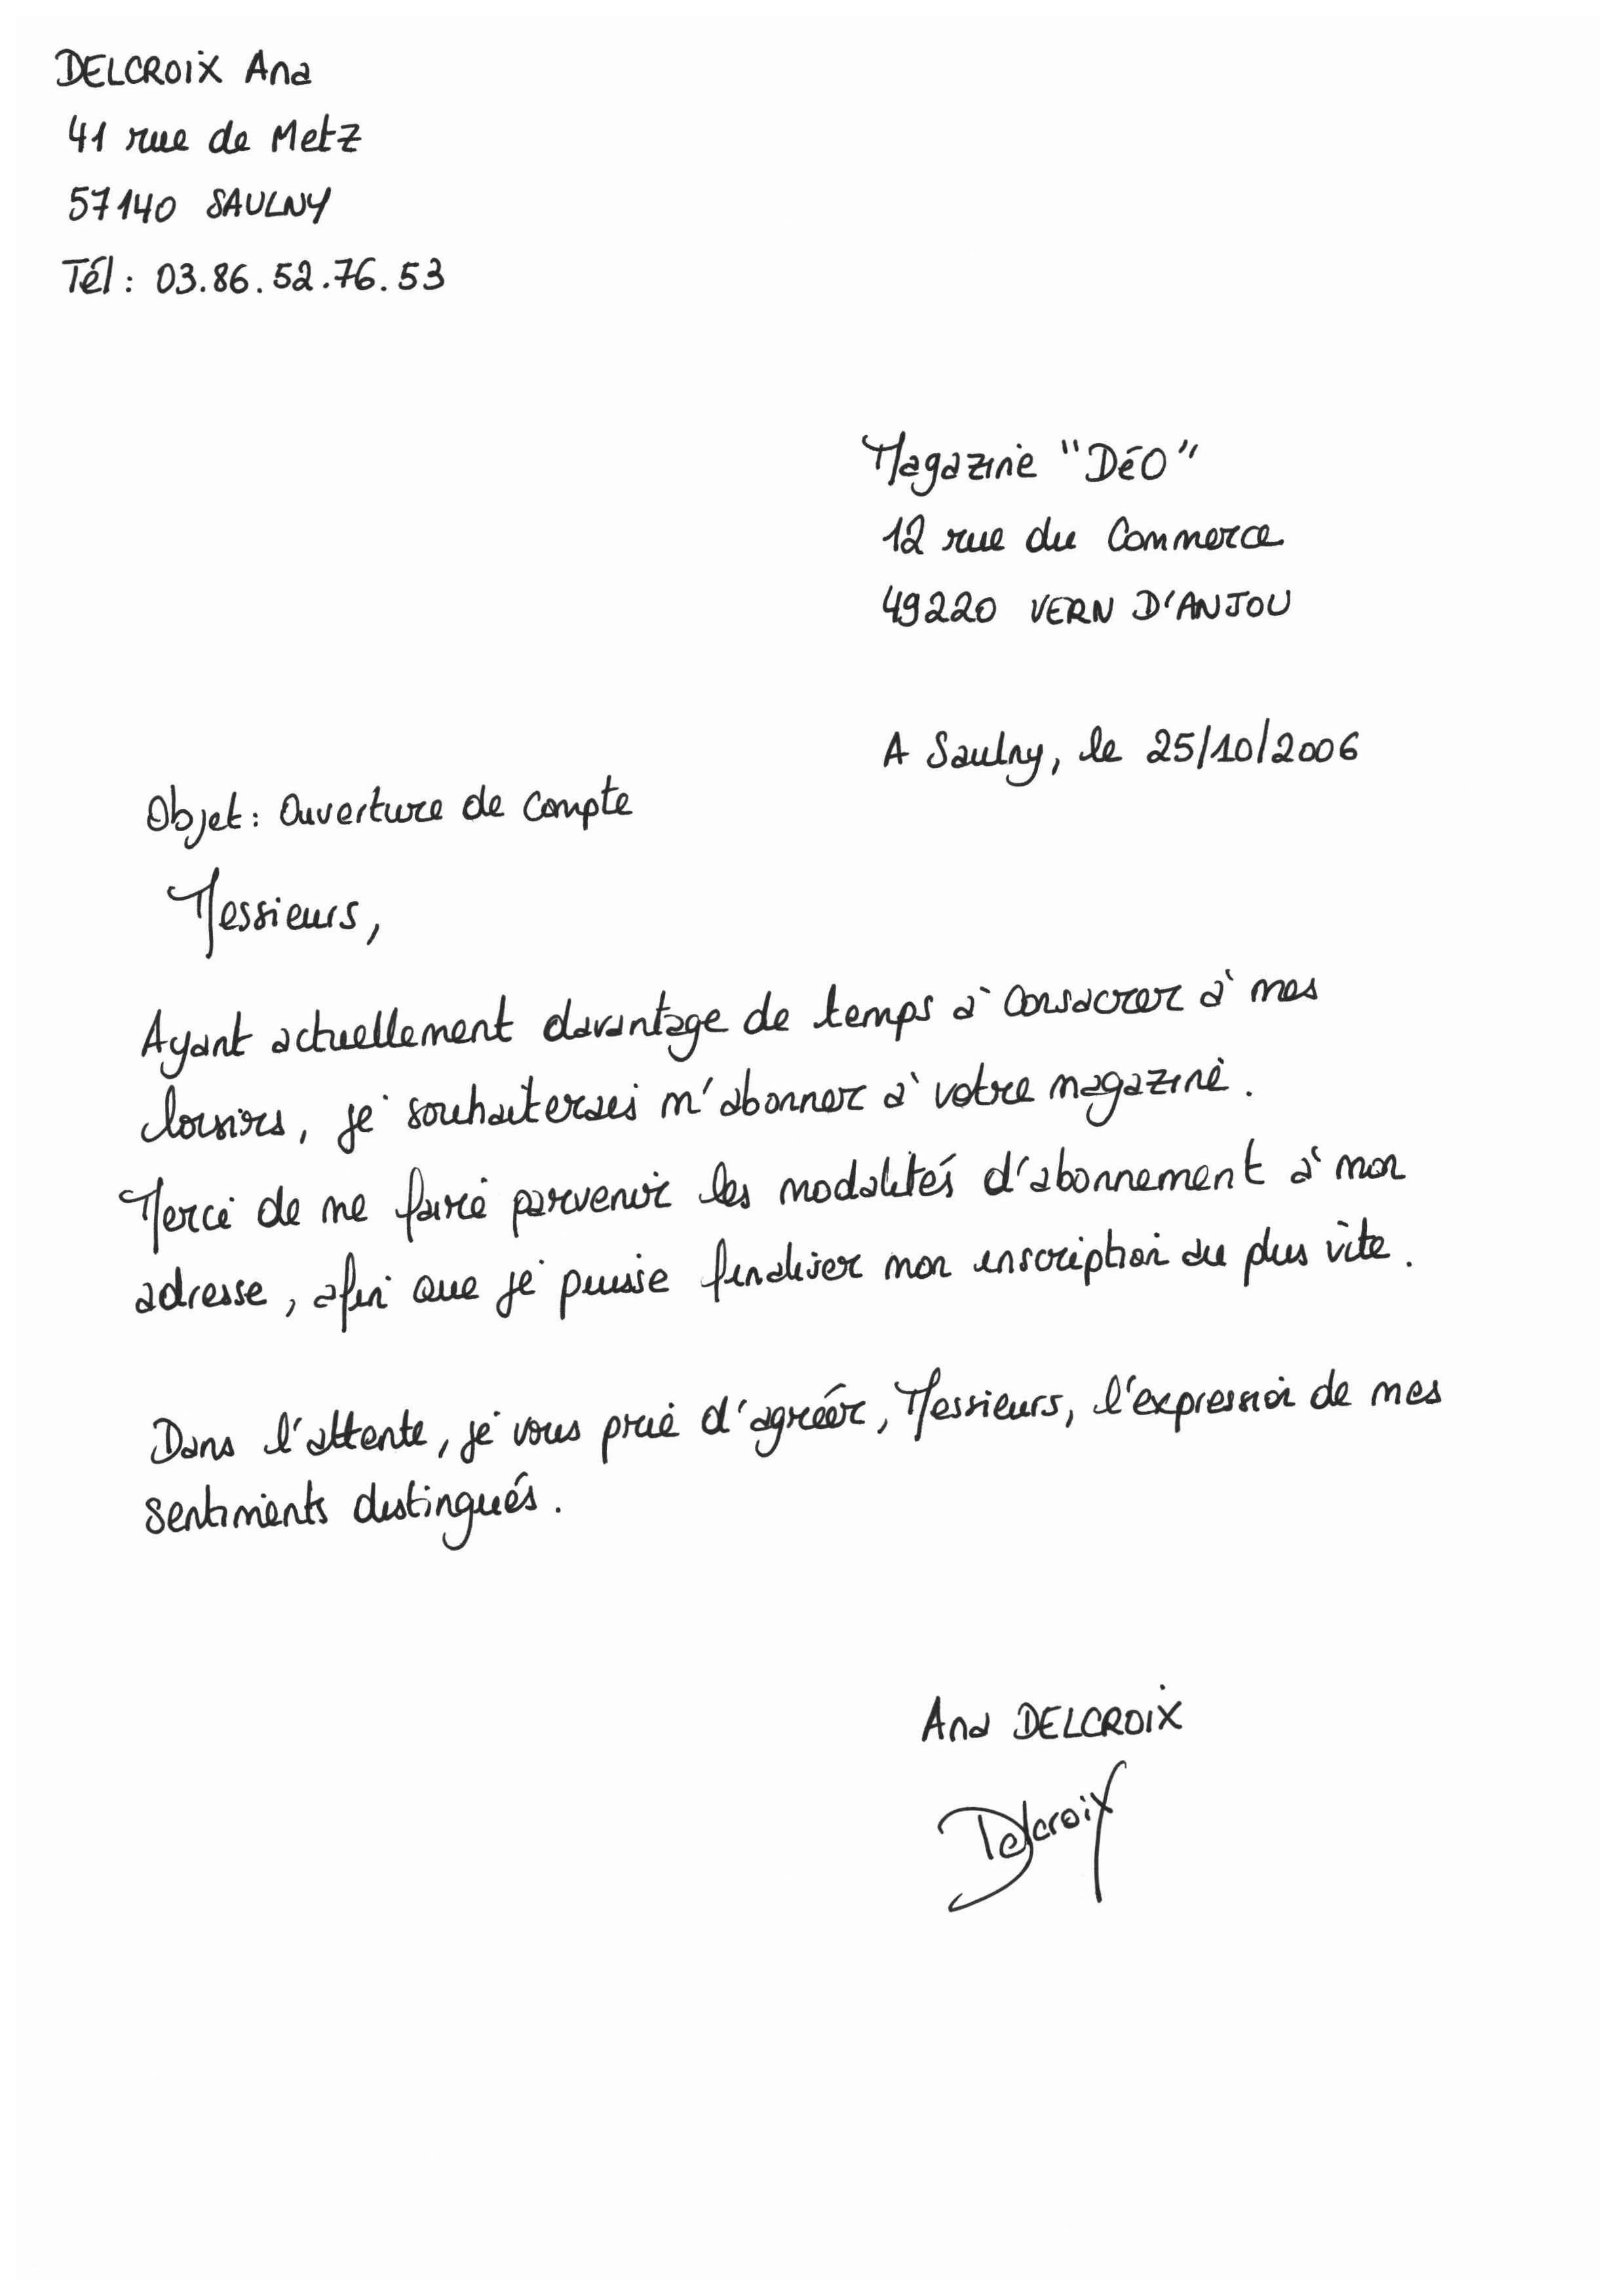 DELCROIX Ana
41 rue de Metz
57140 SAULNY
Tél : 03.86.52.76.53
Magazine "DéO"
12 rue du Commerce
49220 VERN D'ANJOU
A Saulny, le 25/10/2006
Objet : Ouverture de compte
Messieurs,
Ayant actuellement davantage de temps à consacrer à mes
loisirs, je souhaiterais m'abonner à votre magazine.
Merci de me faire parvenir les modalités d'abonnement à mon
adresse, afin que je puisse finaliser mon inscription au plus vite.
Dans l'attente, je vous prie d'agréér, Messieurs, l'expression de mes
sentiments distingués.
Ana DELCROIX
Delcroix